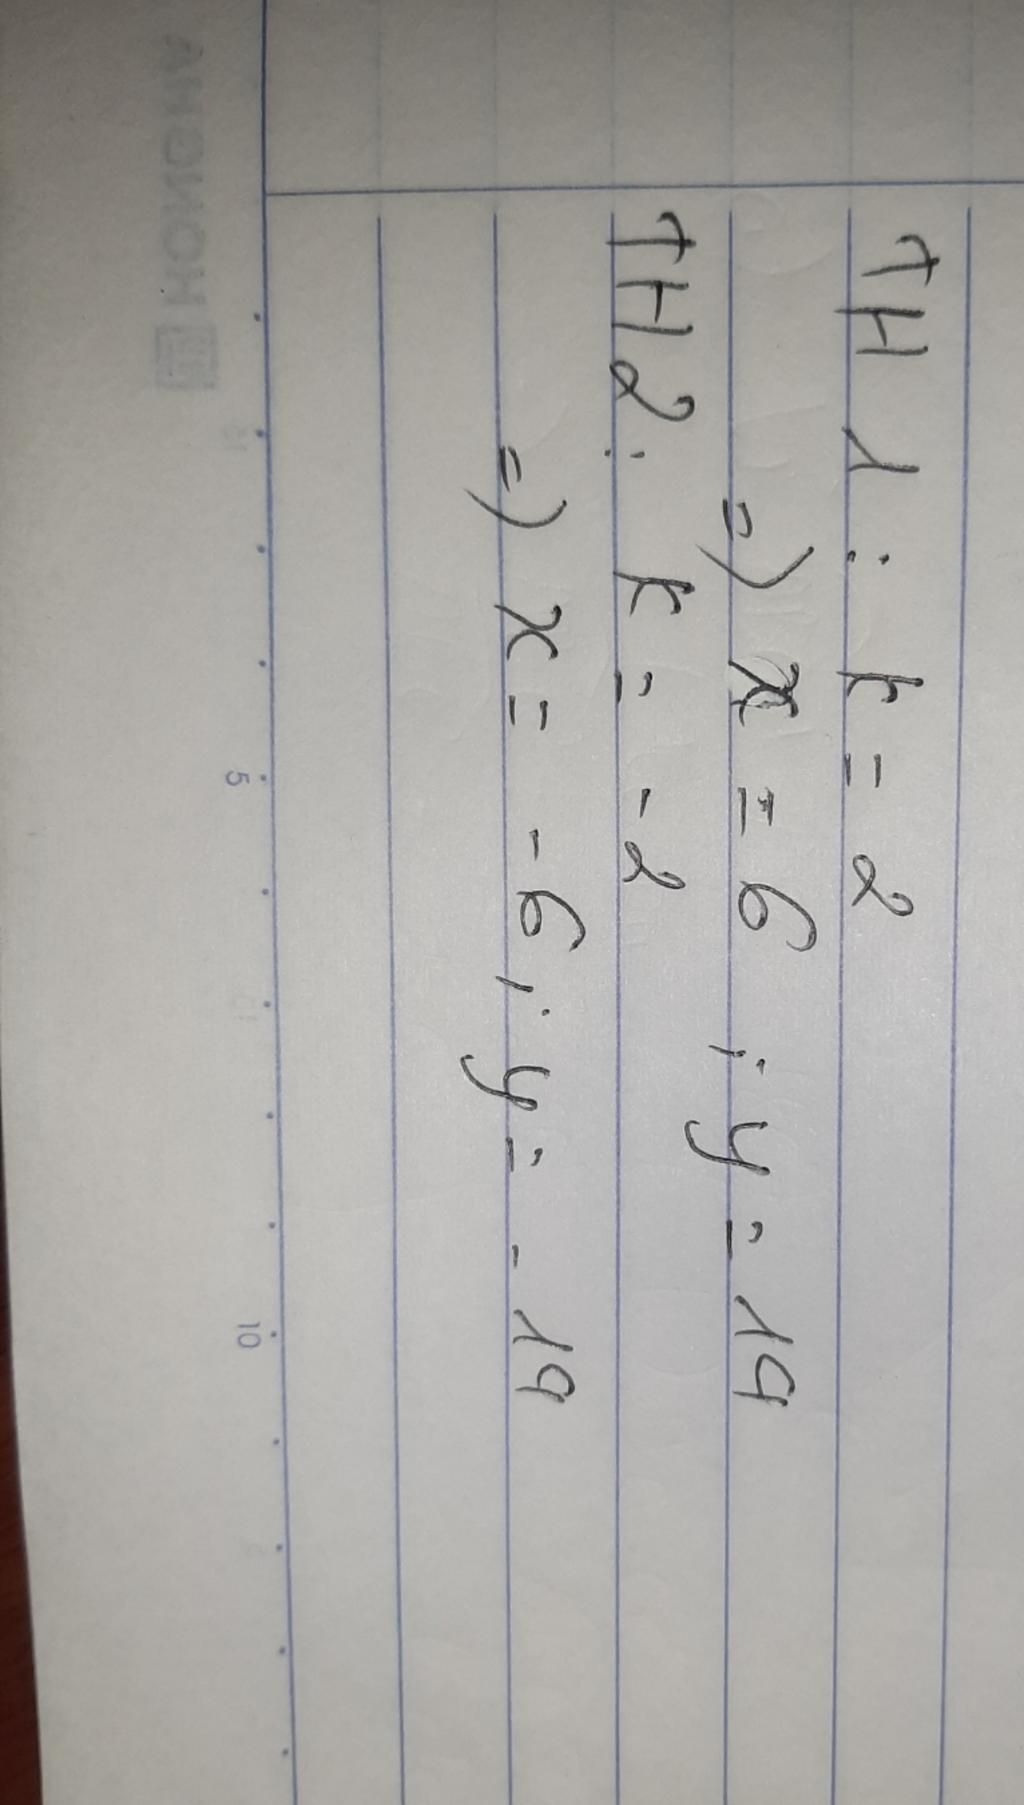 TH1: k = 2
=) x = 6 ; y = 14
TH2: k = -2
=) x = -6; y = -14
5
10
HONG HA